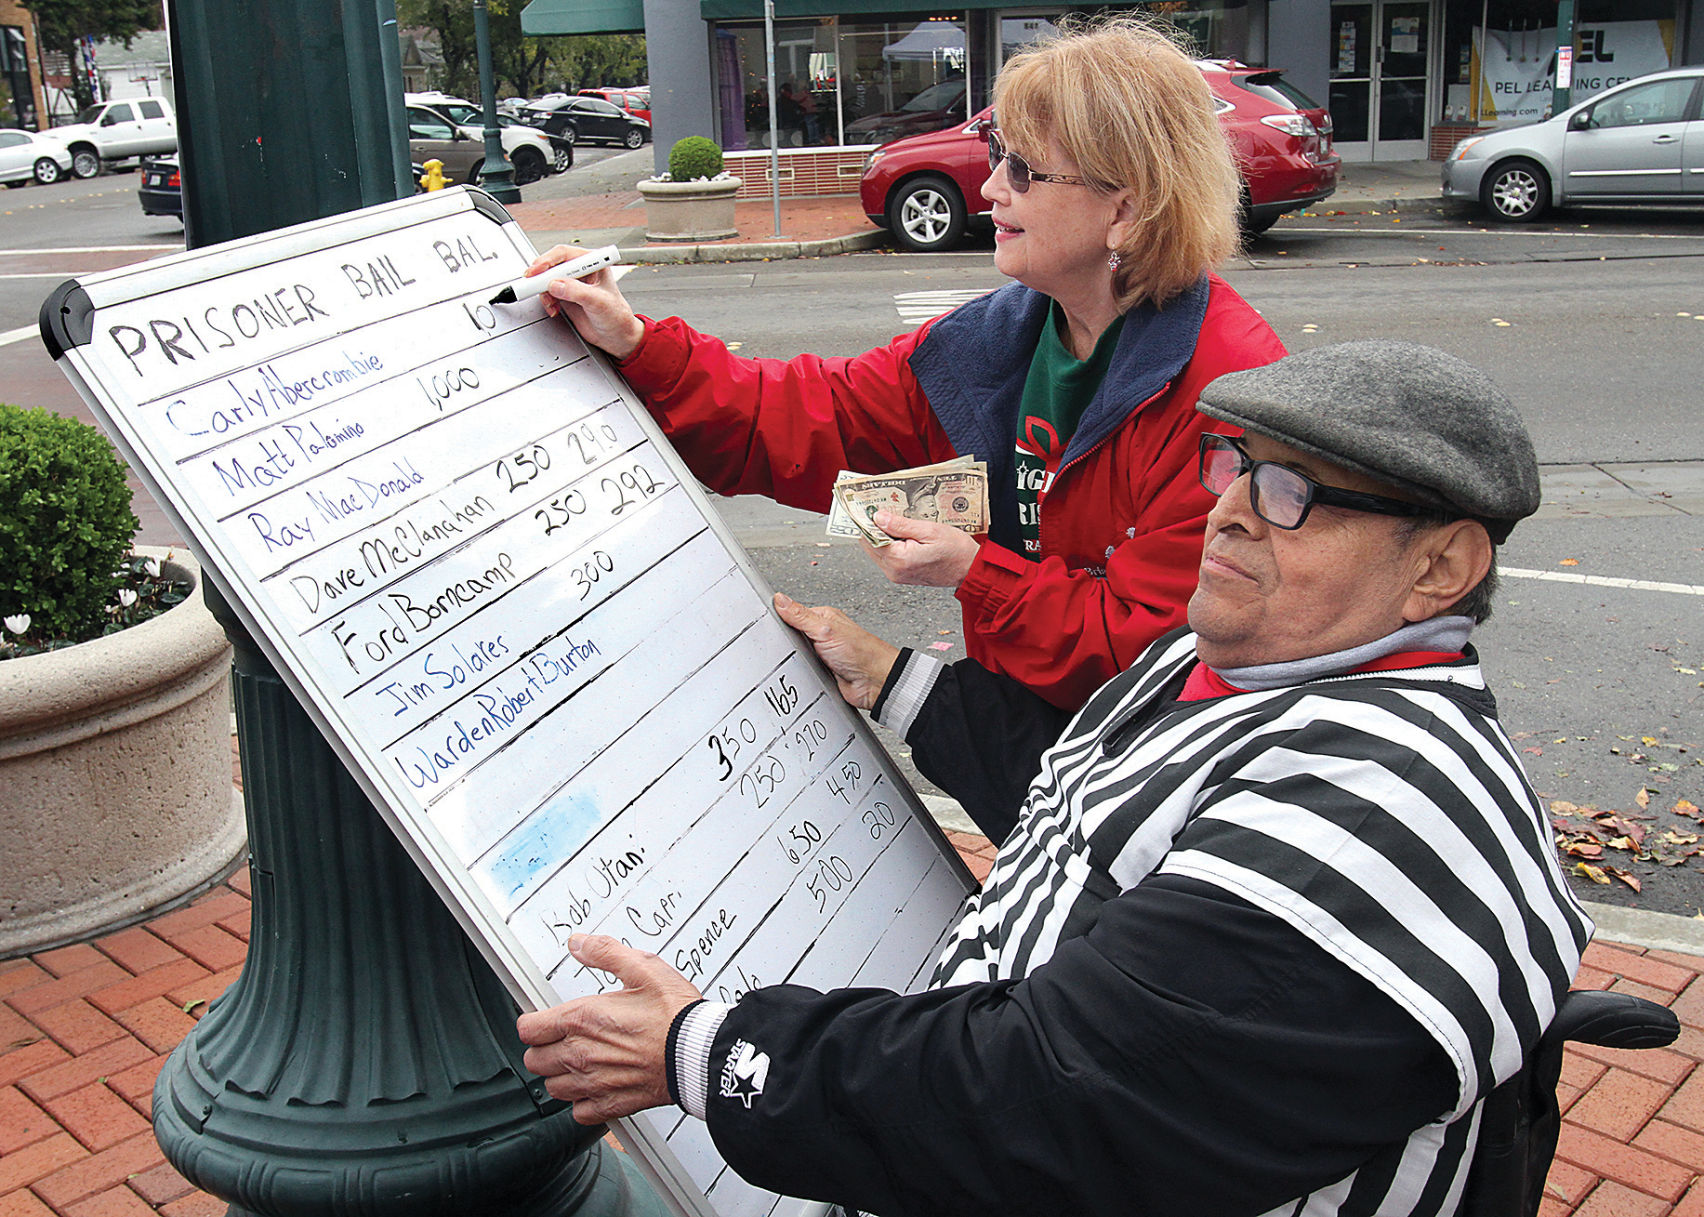 PRISONER BAIL BAL.
Carly Abercrombie 10
Matt Palomino 1,000
Ray MacDonald
Dave McClanahan 250 290
Ford Borncamp 250 292
Jim Solares 300
Warden Robert Burton
Bob Utani 350 165
Capri 250 270
Spence 650 450
500 20
PEL LEARNING CE
STARTER
TEN DOLLARS
10